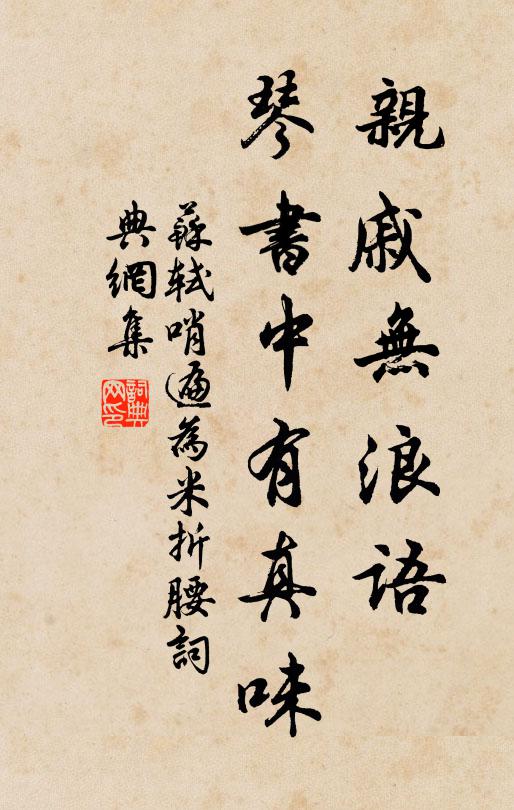 親戚無浪語
琴書中有真味
蘇軾哨遍為米折腰詞
典網集
詞典網印